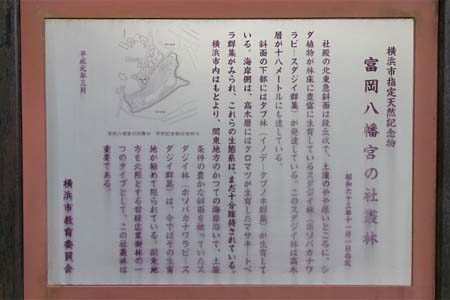 横浜市指定天然記念物
富岡八幡宮の社叢林
昭和六十三年十一月一日指定
社殿の北東急斜面は段丘状で、土壌のやや厚いところに、シ
ダ植物が林床に豊富に生育しているスダジイ林（ホソバカナワ
ラビースダジイ群集）が発達している。このスダジイ林は高木
層が十八メートルにも達している。
斜面の下部にはタブ林（イノデータブノキ群集）が生育して
いる。海岸側は、高木層にはクロマツが生育したマサキートベ
ラ群集がみられ、これらの生態系は、まだ十分維持されている。
横浜市内はもとより、関東地方のかつての海岸沿いで、土壌
条件の豊かな斜面を被っていたス
ダジイ林（ホソバカナワラビース
ダジイ群集）は、今ではその生育
地が極めて限られている。関東地
方を北限とする常緑広葉樹林の一
つのタイプとして、この社叢林は
重要である。
平成元年三月
横浜市教育委員会